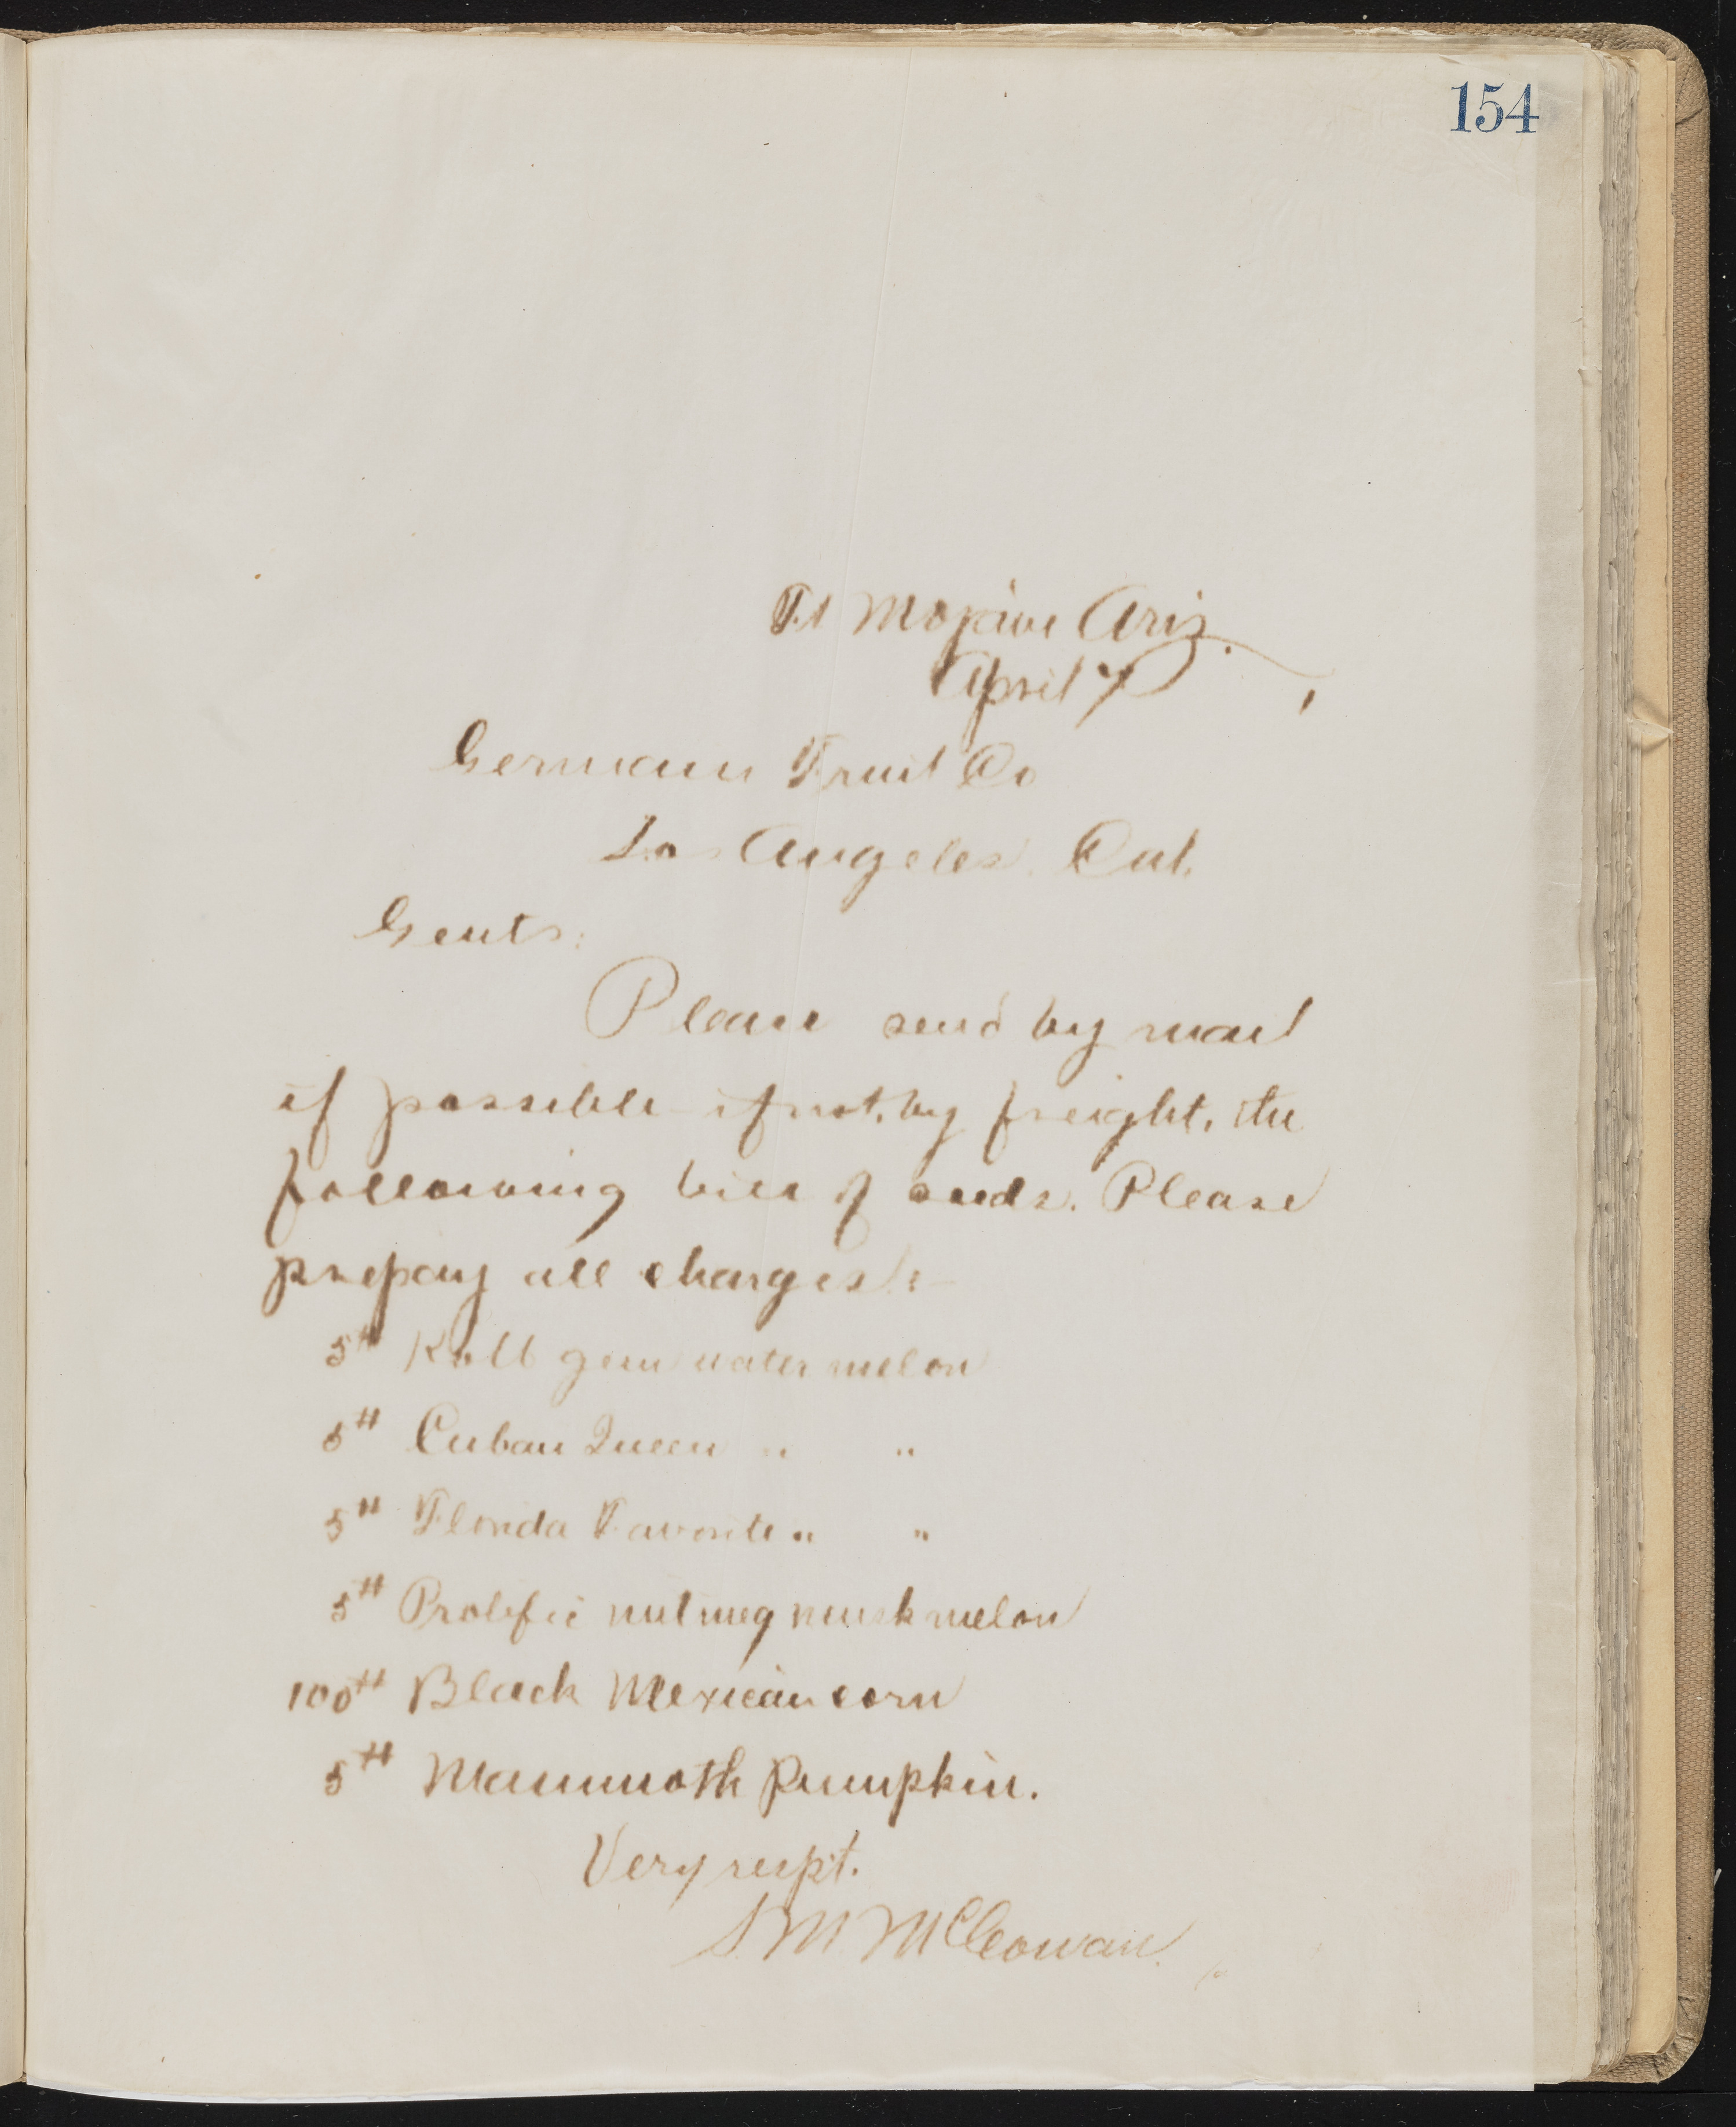 154
Ft Mojave Ariz.
April 7
Germain Fruit Co
Los Angeles. Cal.
Gents:
Please send by mail
if possible – if not, by freight, the
following bill of seeds. Please
prepay all charges:–
5# Kolb gem water melon
5# Cuban Queen " "
5# Florida Favorite " "
5# Prolific nutmeg musk melon
100# Black Mexican corn
5# Mammoth Pumpkin.
Very respt.
S.M. McCowan.